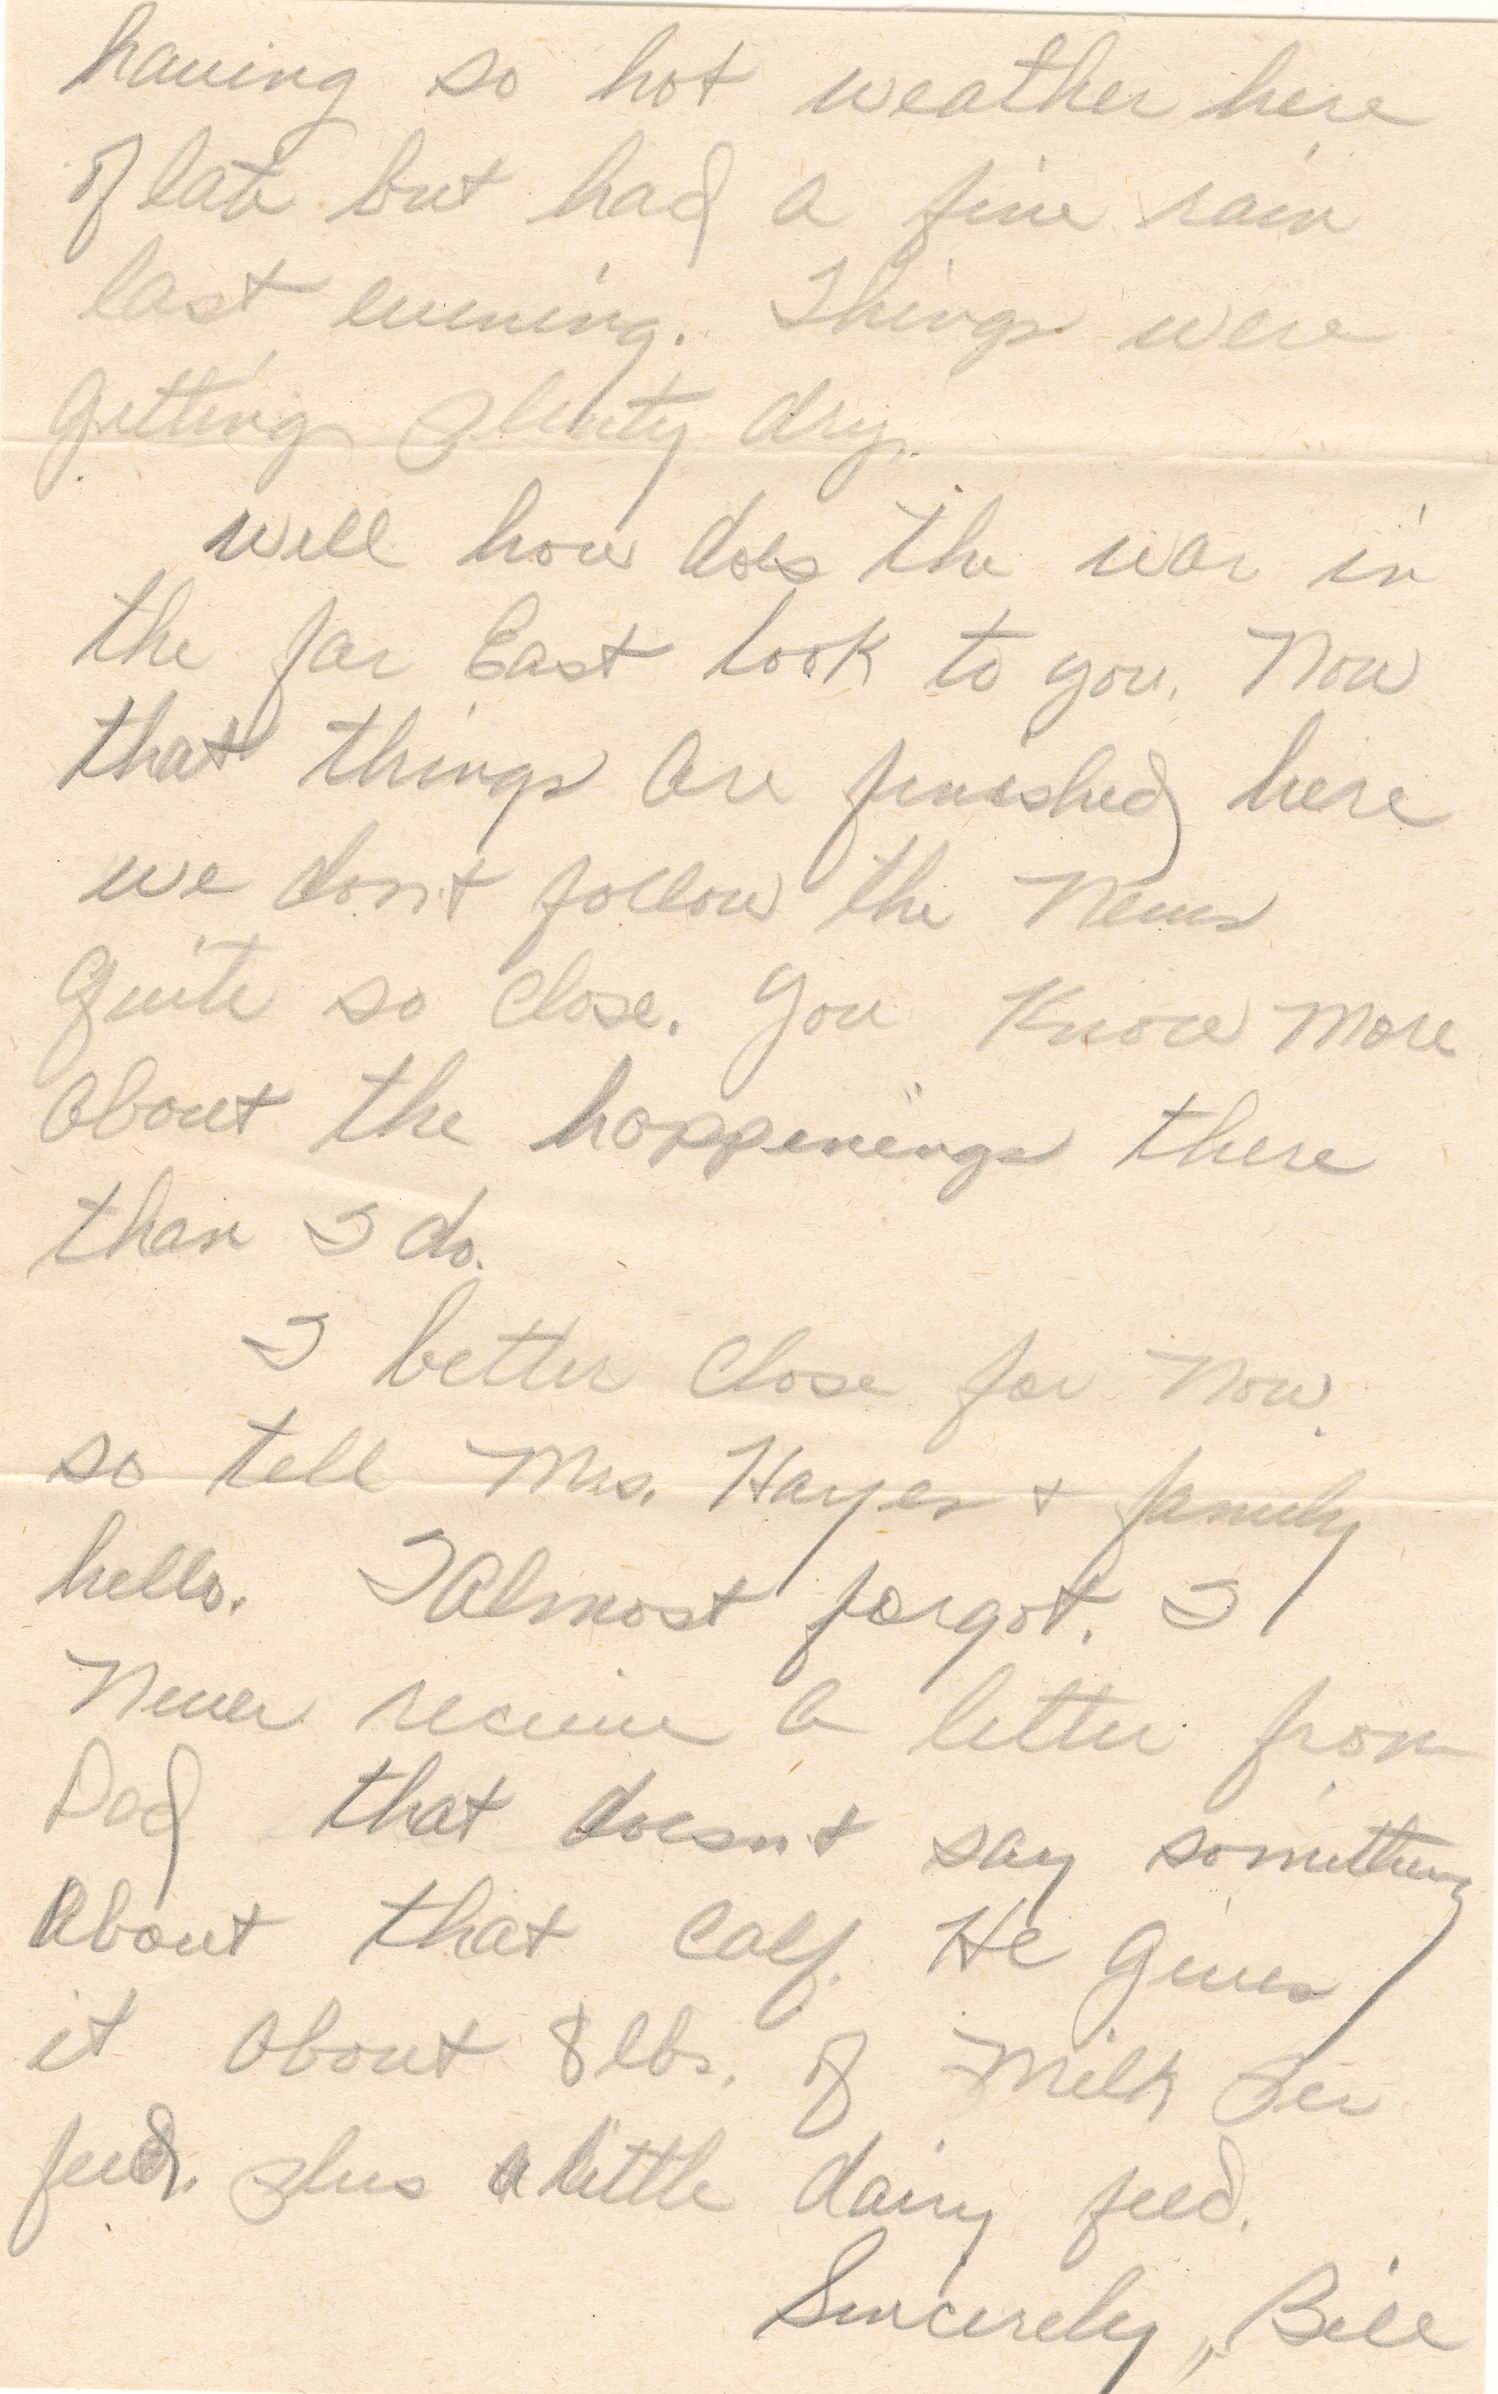 having so hot weather here
of late but had a fine rain
last evening. Things were
getting plenty dry.
Well how does the war in
the far East look to you. Now
that things are finished here
we don't follow the News
quite so close. You Know More
about the happenings there
than I do.
I better Close for Now.
so tell Mrs. Hayes + family
hello. I Almost forgot. I
Never receive a letter from
Dad that doesn't say something
About that Calf. He gives
it about 8 lbs. of Milk Per
feed. plus a little dairy feed.
Sincerely, Bill